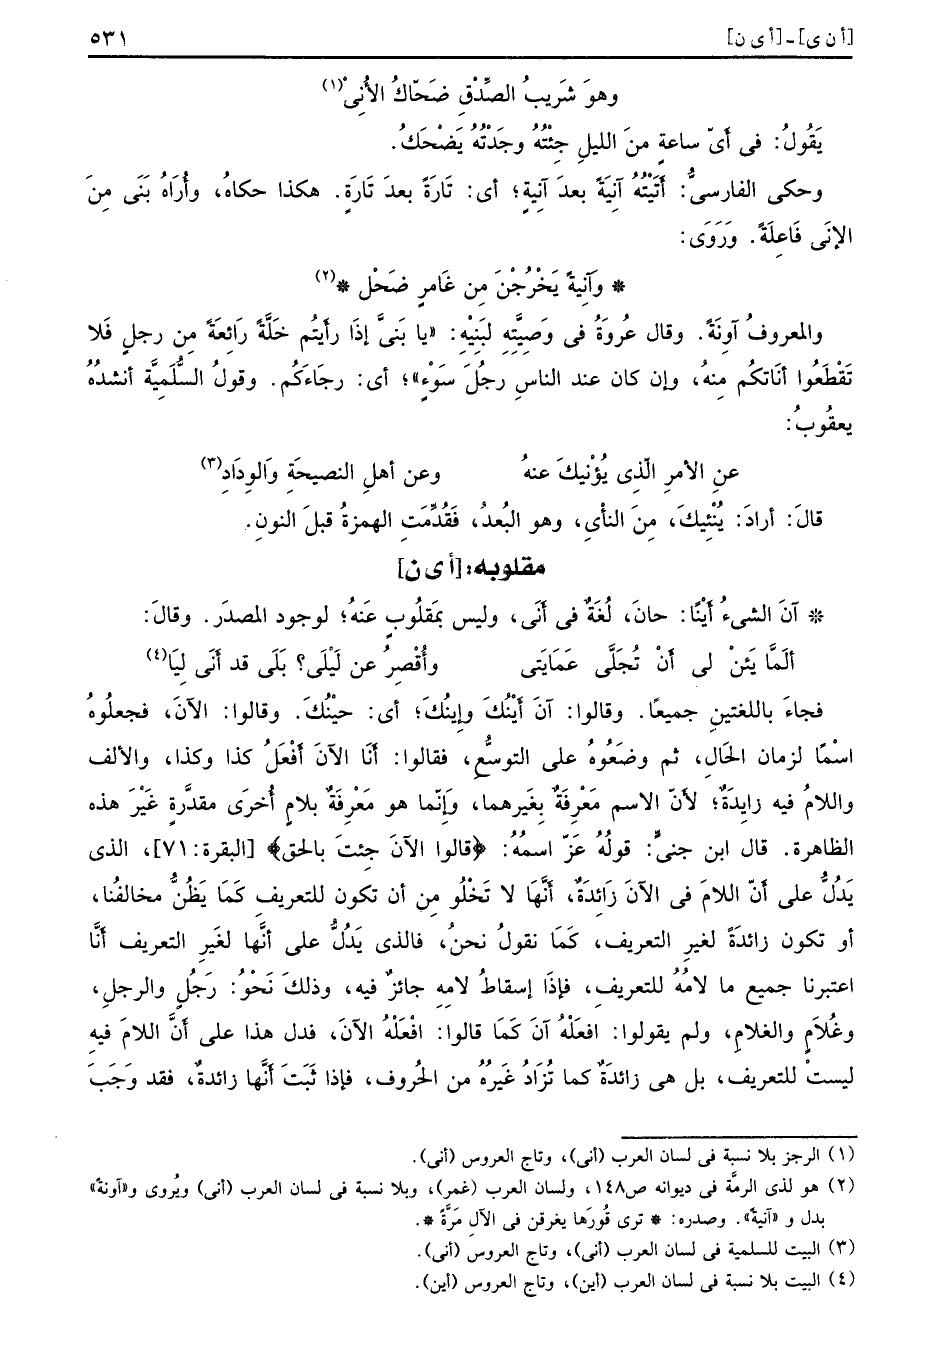 [أ ن ى] - [أ ى ن] ٥٣١
وهوَ شَرِيبُ الصِّدْقِ ضَحّاكُ الأُنِىْ(١)
يَقُولُ: فى أَىّ ساعةٍ منَ الليلِ جِئْتُهُ وجَدْتُهُ يَضْحَكُ.
وحكى الفارسىُّ: أَتَيْتُهُ آنِيَةً بعدَ آنِيةٍ؛ أى: تَارَةً بعدَ تَارَةٍ. هكذا حكاهُ، وأُرَاهُ بَنَى مِنَ
الإنَى فَاعِلَةً. ورَوَى:
* وآنِيةً يَخْرُجْنَ مِن غَامرٍ ضَحْلِ *(٢)
والمعروفُ آوِنَةً. وقال عُروَةُ فى وَصِيَّتِهِ لبَنِيْهِ: «يا بَنىَّ إذَا رأيتُم خَلَّةً رَائعَةً مِن رجلٍ فَلا
تَقْطَعُوا أنَاتَكُم مِنهُ، وإن كان عند الناسِ رجُلَ سَوْءٍ»؛ أى: رجَاءَكُم. وقولُ السُّلَمِيَّة أنشدُهُ
يعقُوبُ:
عنِ الأمرِ الّذى يُؤْنيكَ عنهُ وعن أهلِ النصيحَةِ والودَادِ(٣)
قالَ: أرادَ: يُنْئيكَ، مِنَ النأى، وهو البُعدُ، فَقُدِّمَت الهمزةُ قبلَ النونِ.
مقلوبه: [أ ى ن]
* آنَ الشىءُ أَيْنًا: حانَ، لُغَةٌ فى أنَى، وليس بمَقلُوبٍ عَنهُ؛ لوجود المصدَر. وقالَ:
ألَمَّا يَئنْ لى أنْ تُجَلَّى عَمَايَتى وأُقْصِرُ عن لَيْلَى؟ بَلَى قد أنَى لِيَا(٤)
فجاءَ باللغتينِ جميعًا. وقالوا: آنَ أَيْنُكَ وإينُكَ؛ أى: حيْنُكَ. وقالوا: الآنَ، فجعلُوهُ
اسْمًا لزمان الحَال، ثم وضَعُوهُ على التوسعُّ، فقالوا: أنَا الآنَ أفْعَلُ كذا وكذا، والألف
واللامُ فيه زايدَةٌ؛ لأنّ الاسم مَعْرِفَةٌ بغَيرهما، وَإنّما هو مَعْرِفَةٌ بلامٍ أُخرَى مقدَّرةٍ غَيْرَ هذه
الظاهرة. قال ابن جنىٍّ: قولُهُ عَزّ اسمُهُ: ﴿قالوا الآنَ جئتَ بالحق﴾ [البقرة: ٧١]، الذى
يَدُلُّ على أنّ اللامَ فى الآنَ زَائدَةٌ، أنَّهَا لا تَخْلُو من أن تكون للتعريف كَمَا يَظُنُّ مخالفُنا،
أو تكون زائدَةً لغيرِ التعريف، كَمَا نقولُ نحنُ، فالذى يَدُلُّ على أنَّها لغَيرِ التعريف أنَّا
اعتبرنا جميع ما لامُهُ للتعريف، فإذَا إسقاطُ لامِهِ جائزٌ فيه، وذلكَ نَحْوُ: رَجُلٍ والرجلِ،
وغُلاَمٍ والغلامِ، ولم يقولوا: افعَلْهُ آنَ كَمَا قالوا: افْعَلْهُ الآنَ، فدل هذا على أنَّ اللامَ فيهِ
ليستْ للتعريف، بل هى زائدَةٌ كما تُزَادُ غَيرُهُ من الحُروف، فإذا ثَبَتَ أنَّها زائدةٌ، فقد وَجَبَ
(١) الرجز بلا نسبة فى لسان العرب (أنى)، وتاج العروس (أنى).
(٢) هو لذى الرمَّة فى ديوانه ص١٤٨، ولسان العرب (غمر)، وبلا نسبة فى لسان العرب (أنى) ويُروى و«آونةً»
بدل و «آنيةً». وصدره: * ترى قُورَها يغرقن فى الآلِ مَرَّةً *.
(٣) البيت للسلمية فى لسان العرب (أنى)، وتاج العروس (أنى).
(٤) البيت بلا نسبة فى لسان العرب (أين)، وتاج العروس (أين).